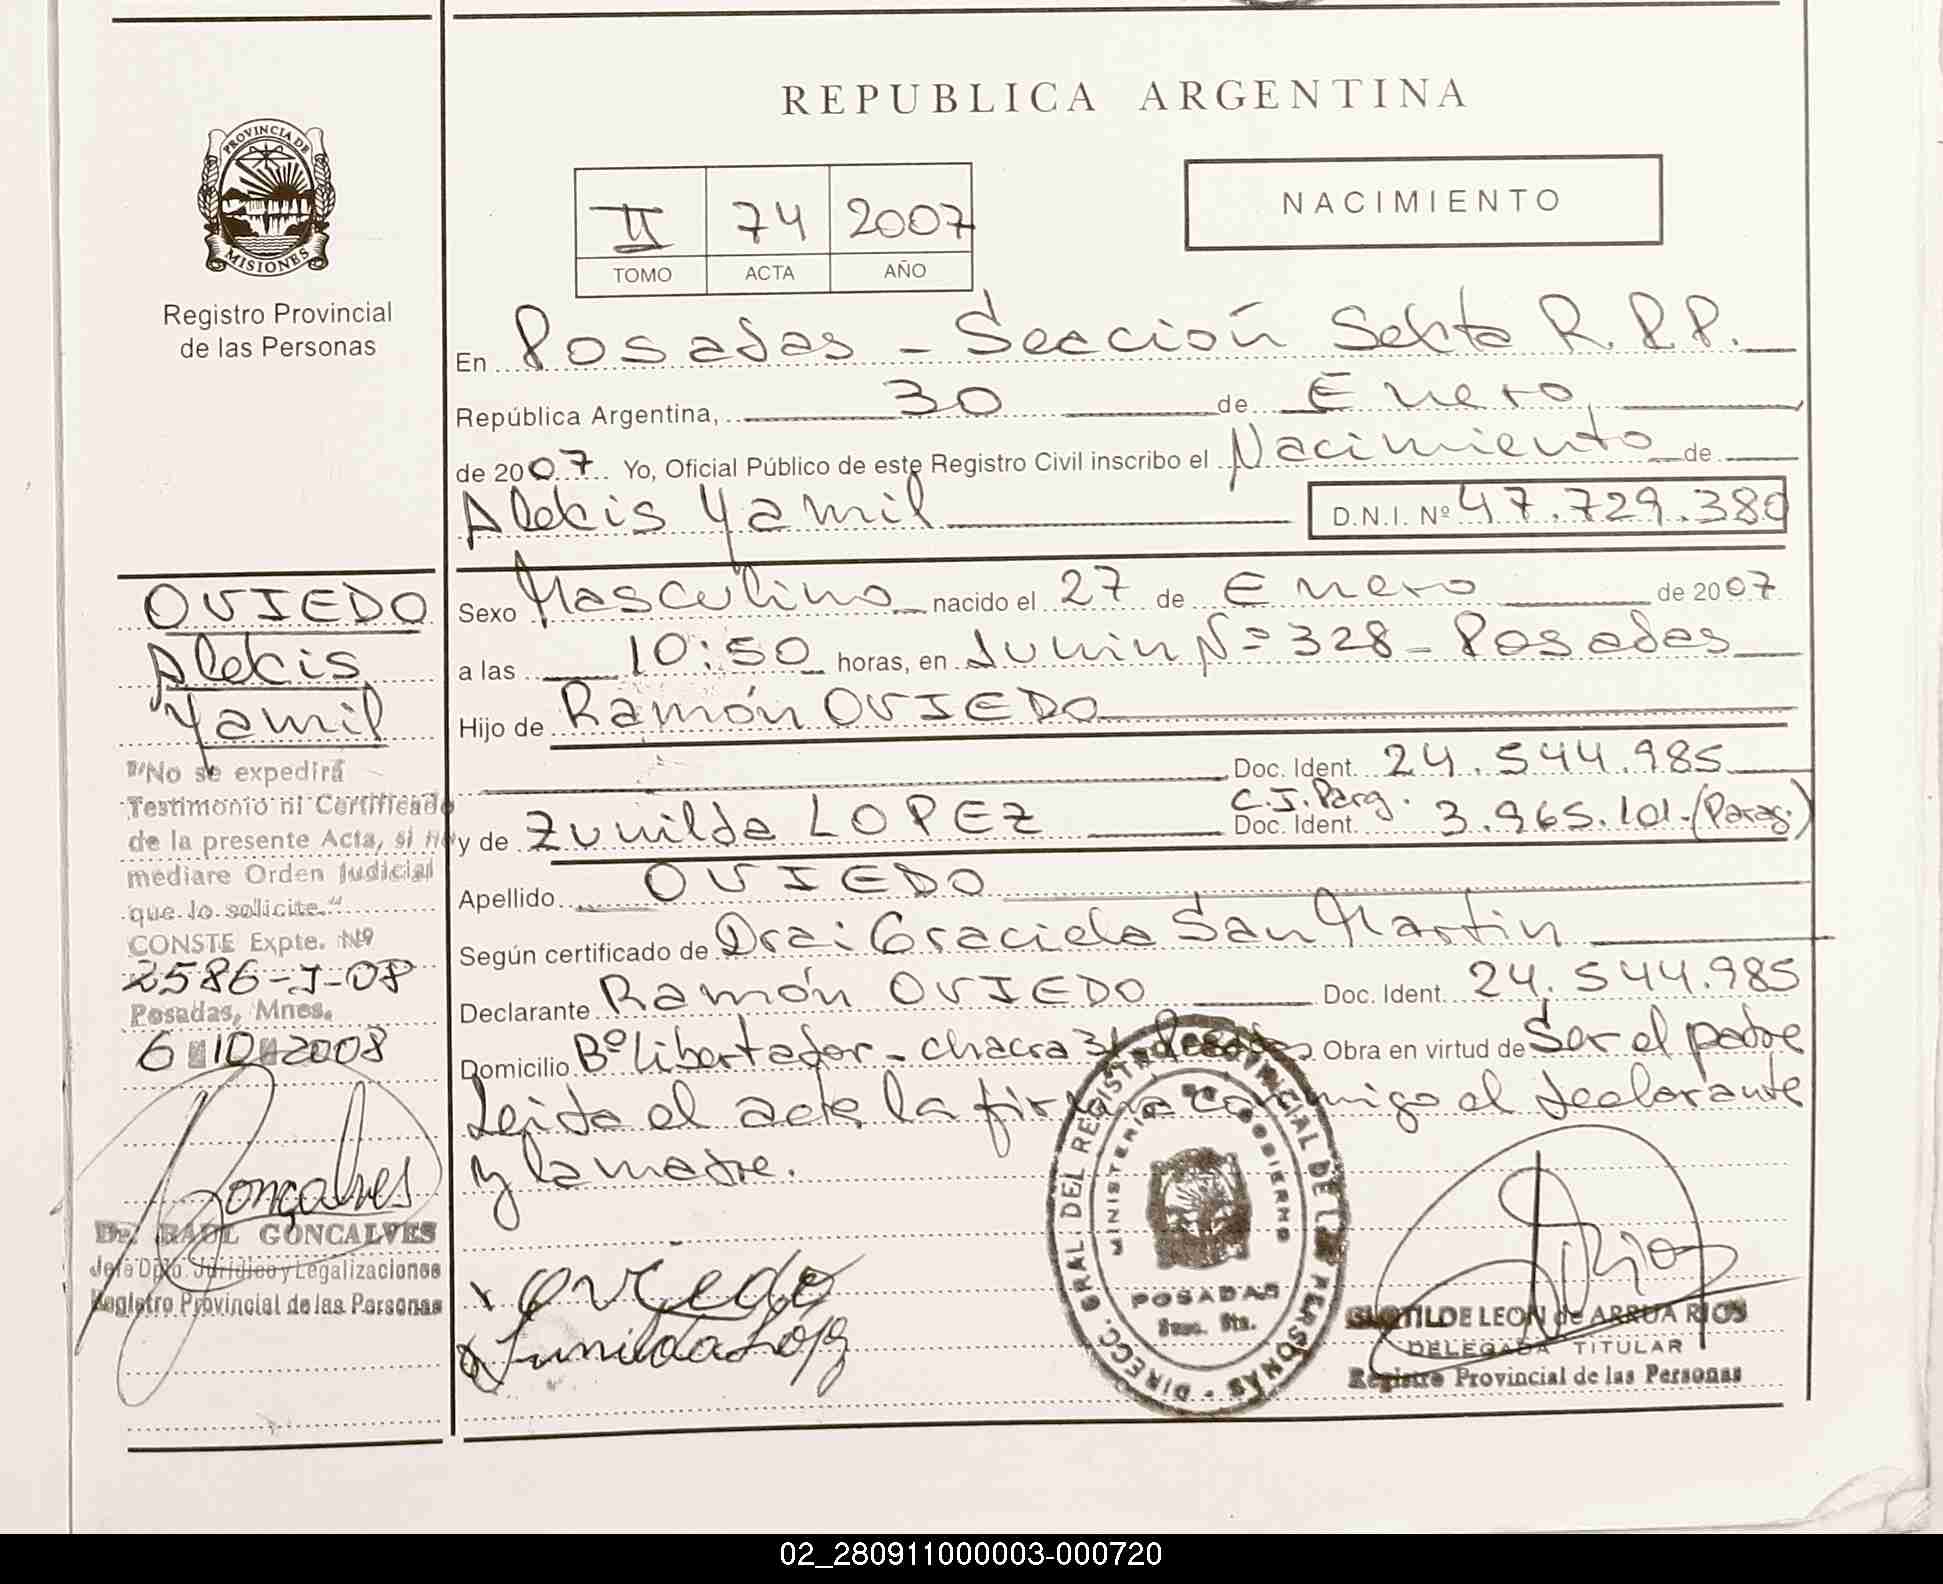 REPUBLICA ARGENTINA
PROVINCIA DE
MISIONES
Registro Provincial
de las Personas
II 74 2007
TOMO ACTA AÑO
NACIMIENTO
En Posadas - Sección Sexta R.P.P.
República Argentina, 30 de Enero,
de 2007. Yo, Oficial Público de este Registro Civil inscribo el Nacimiento de
Alexis Yamil D.N.I. Nº 47.729.380
OVIEDO
Alexis
Yamil
"No se expedirá
Testimonio ni Certificado
de la presente Acta, si no
mediare Orden Judicial
que lo solicite."
CONSTE Expte. Nº
2586-J-08
Posadas, Mnes.
6 10 2008
Goncalves
Dr. RAUL GONCALVES
Jefe Dpto. Jurídico y Legalizaciones
Registro Provincial de las Personas
Sexo Masculino nacido el 27 de Enero de 2007
a las 10:50 horas, en Junin Nº 328 - Posadas
Hijo de Ramón OVIEDO
Doc. Ident. 24.544.985
C.I. Parg.
y de Zunilda LOPEZ Doc. Ident. 3.965.101.(Parag.)
Apellido OVIEDO
Según certificado de Dra: Graciela San Martin
Declarante Ramón OVIEDO Doc. Ident. 24.544.985
Domicilio Bº libertador - chacra 31 Posadas Obra en virtud de Ser el padre
Leida el acta la firma conmigo el declarante
y la madre.
Oviedo
Zunilda López
DIRECC. GRAL. DEL REGISTRO PROVINCIAL DE LAS PERSONAS
MINISTERIO DE GOBIERNO
POSADAS
Secc. 6ta.
Rios
CLOTILDE LEON de ARRUA RIOS
DELEGADA TITULAR
Registro Provincial de las Personas
02_280911000003-000720